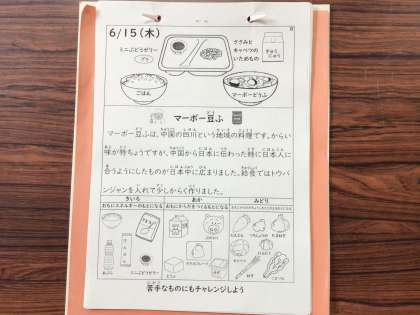 6/15(木)
ミニぶどうゼリー
ささみと
キャベツの
いためもの
ぎゅうにゅう
ごはん
マーボーどうふ
マーボー豆ふ
マーボー豆ふは、中国の四川という地域の料理です。からい
味が特ちょうですが、中国から日本に伝わった時に日本人に
合うようにしたものが日本中に広まりました。給食ではトウバ
ンジャンを入れて少しからく作りました。
きいろ
あか
みどり
おもにエネルギーのもとになる
おもにからだをつくるもとになる
ミニぶどうゼリー
苦手なものにもチャレンジしよう